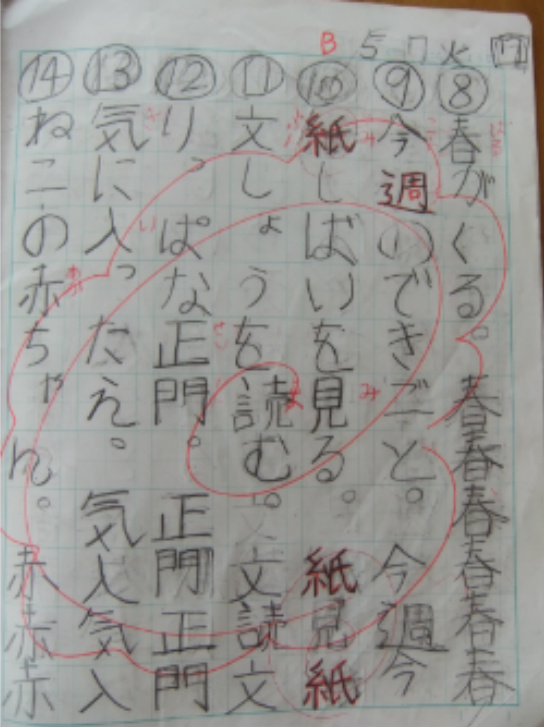 B 5 7 火 17
⑧ 春がくる。 春春春春春春
⑨ 今週のできごと。 今週今
⑩ 紙しばいを見る。 紙見紙
⑪ 文しょうを読む。 文読文
⑫ りっぱな正門。 正門正門
⑬ 気に入ったえ。 気人気入
⑭ ねこの赤ちゃん。 赤赤赤